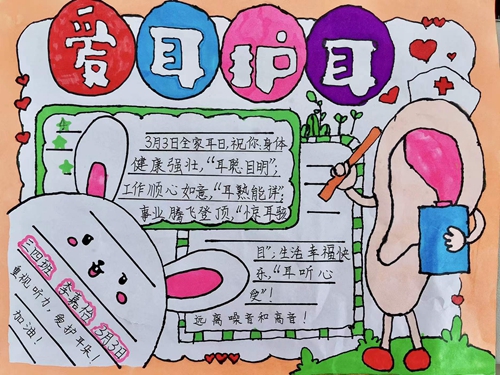 爱耳护耳
3月3日全家耳日,祝你身体
健康强壮,“耳聪目明”;
工作顺心如意,“耳熟能详”;
事业腾飞登顶,“惊耳骇
目”;生活幸福快
乐,“耳听心
受”!
远离噪音和高音!
三四班 李嘉怡 3月3日
重视听力,爱护耳朵!
加油!